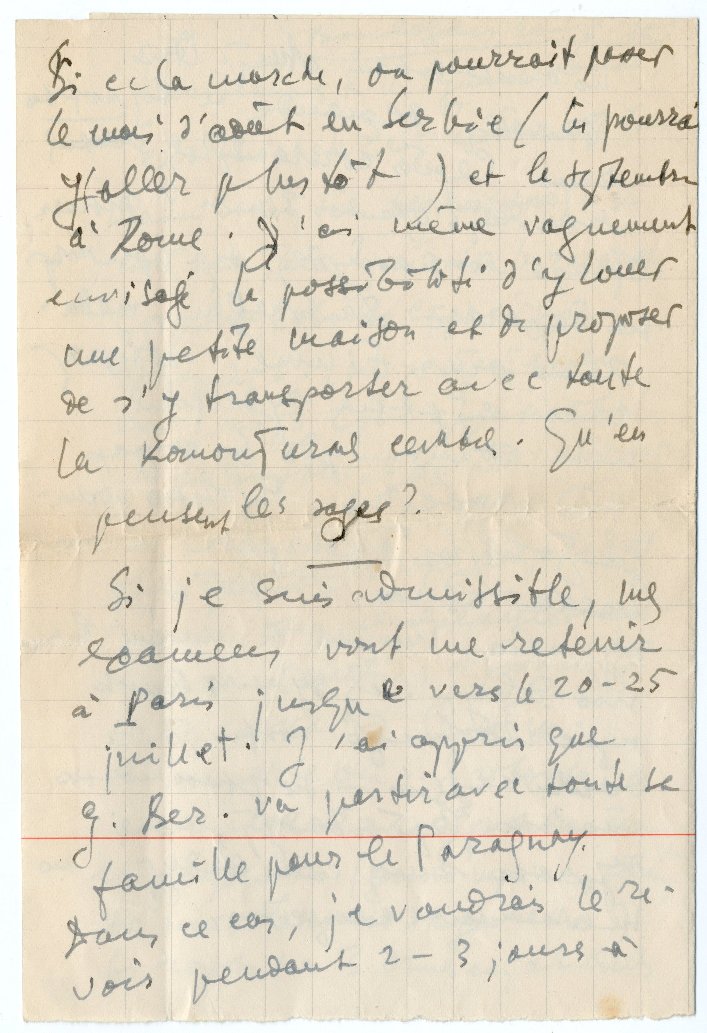 Si cela marche, on pourrait passer
le mois d'août en Serbie (tu pourrai
y aller plus tôt) et le septembre
à Rome. J'ai même vaguement
envisagé la possibilité d'y louer
une petite maison et de proposer
de s'y transporter avec toute
la. Qu'en
pensent les sages?
Si je suis admissible, mes
examens vont me retenir
à Paris jusque vers le 20-25
juillet. J'ai appris que
G. Ber. va partir avec toute sa
famille pour le Paraguay.
Dans ce cas, je voudrais le re-
voir pendant 2-3 jours à